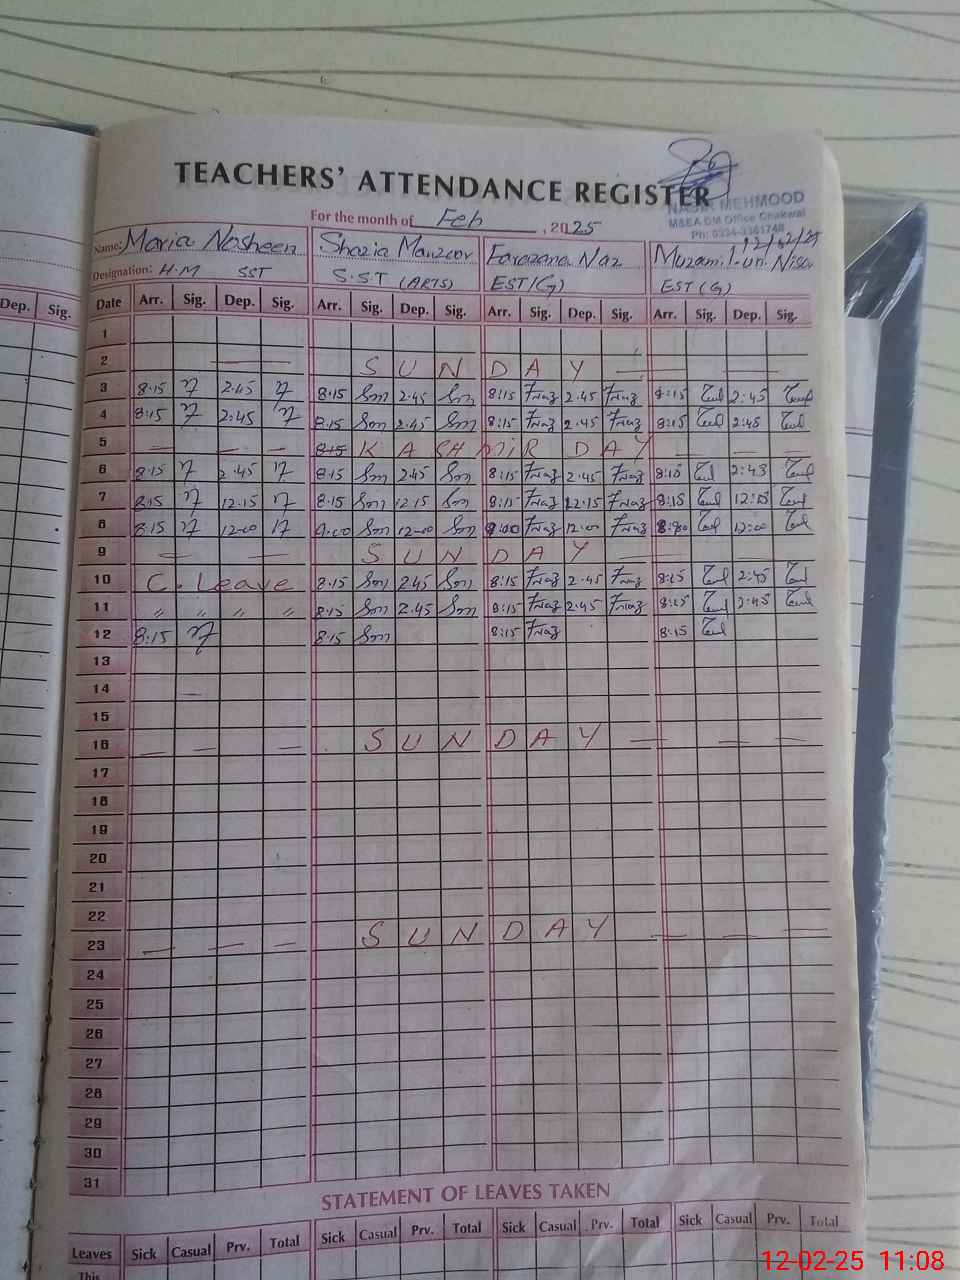 TEACHERS' ATTENDANCE REGISTER
NASIR MEHMOOD
M&EA DM Office Chakwal
12/02/25
For the month of Feb, 2025
Name: Maria Nosheen Shazia Manzoor Farazana Naz Muzamil-un-Nisa
Designation: H.M SST S.ST (ARTS) EST(G) EST(G)
Dep. Sig. Date Arr. Sig. Dep. Sig. Arr. Sig. Dep. Sig. Arr. Sig. Dep. Sig. Arr. Sig. Dep. Sig.
1
2 — — SUNDAY — — —
3 8:15 2:45 8:15 Sm 2:45 Sm 8:15 Fnaz 2:45 Fnaz 8:15 2:45
4 8:15 2:45 8:15 Sm 2:45 Sm 8:15 Fnaz 2:45 Fnaz 8:15 2:45
5 — — — — 8:15 KASHMIR DAY — — —
6 8:15 2:45 8:15 Sm 2:45 Sm 8:15 Fnaz 2:45 Fnaz 8:15 2:43
7 8:15 12:15 8:15 Sm 12:15 Sm 8:15 Fnaz 12:15 Fnaz 8:15 12:15
8 8:15 12:00 Sm 12:00 Sm Fnaz 12:00 Fnaz 12:00
9 — — SUNDAY — —
10 C. Leave 8:15 Sm 2:45 Sm 8:15 Fnaz 2:45 Fnaz 8:15 2:45
11 " " " " 8:15 Sm 2:45 Sm 8:15 Fnaz 2:45 Fnaz 8:15 2:45
12 8:15 8:15 Sm 8:15 Fnaz 8:15
13
14
15
16 — — — SUNDAY — — —
17
18
19
20
21
22
23 — — — SUNDAY — — —
24
25
26
27
28
29
30
31
STATEMENT OF LEAVES TAKEN
Leaves Sick Casual Prv. Total Sick Casual Prv. Total Sick Casual Prv. Total Sick Casual Prv. Total
This
12-02-25 11:08